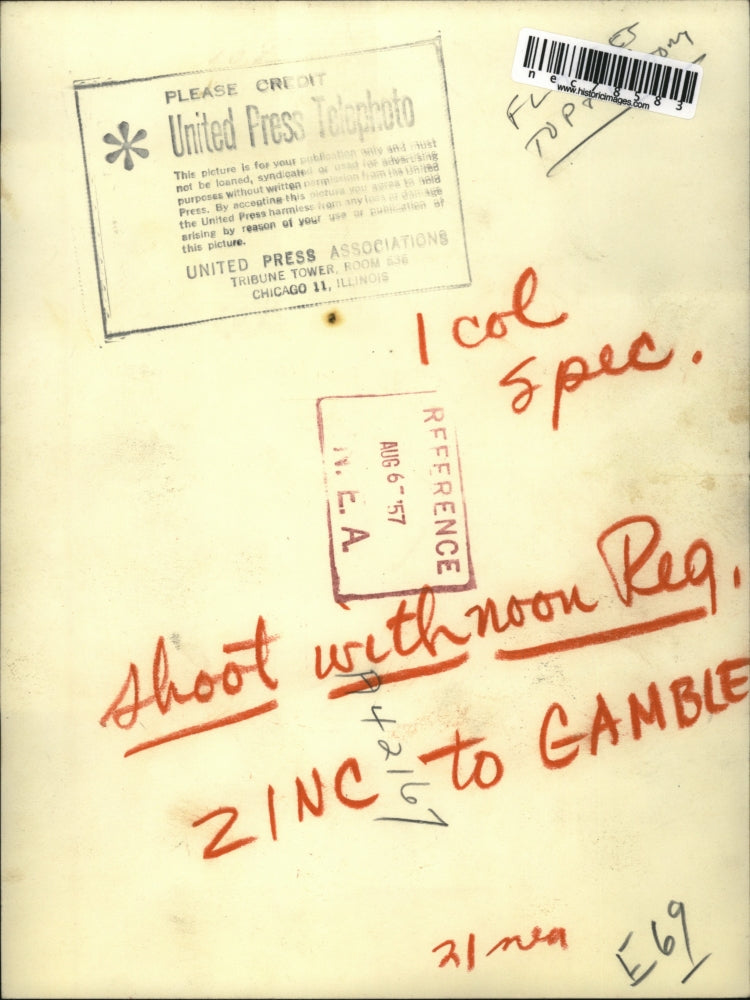 PLEASE CREDIT
* United Press Telephoto
This picture is for your publication only and must
not be loaned, syndicated or used for advertising
purposes without written permission from the United
Press. By accepting this picture you agree to hold
the United Press harmless from any loss or damage
arising by reason of your use or publication of
this picture.
UNITED PRESS ASSOCIATIONS
TRIBUNE TOWER, ROOM 636
CHICAGO 11, ILLINOIS
nec 8583
www.historicimages.com
TOP
1 col
spec.
REFERENCE
AUG 6-'57
N. E. A.
shoot with noon Reg.
A42167
ZINC to GAMBLE
21 nea
E69